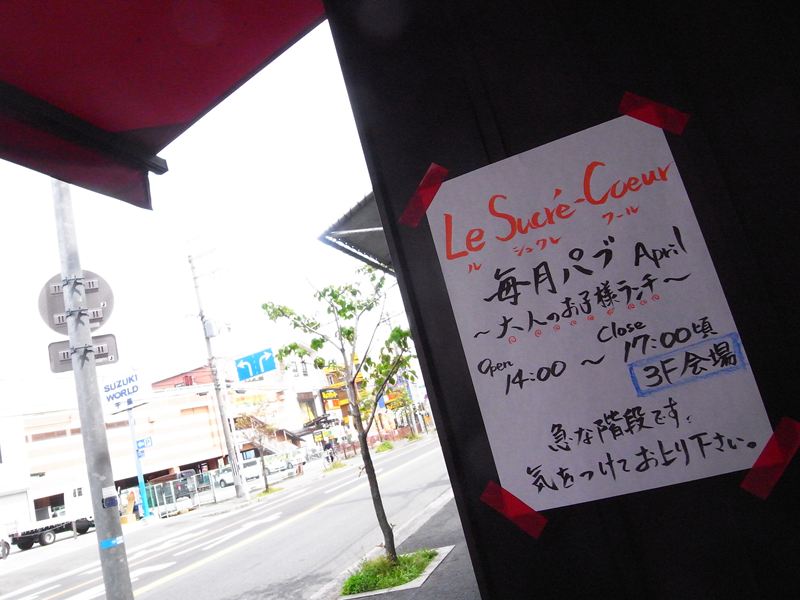 Le Sucré-Coeur
ル シュクレ クール
毎月パブ April
~大人のお子様ランチ~
Open Close
14:00 ~ 17:00頃
3F会場
急な階段です。
気をつけてお上り下さい。
SUZUKI
WORLD